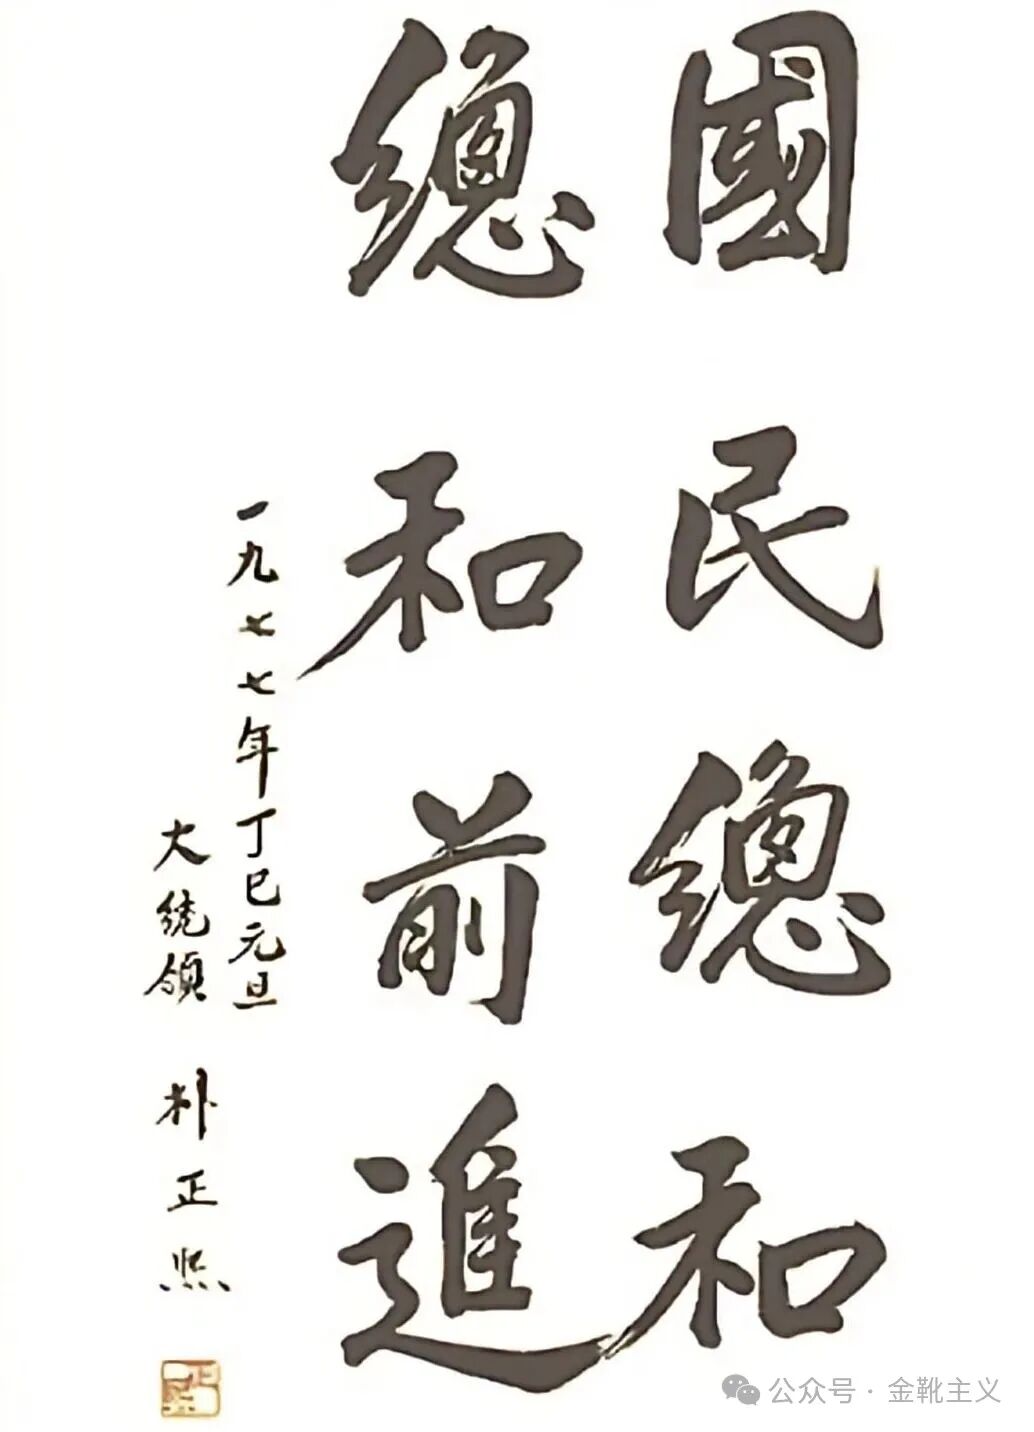 國民總和
總和前進
一九七七年丁巳元旦
大統領 朴正熙
正熙
公众号 · 金靴主义